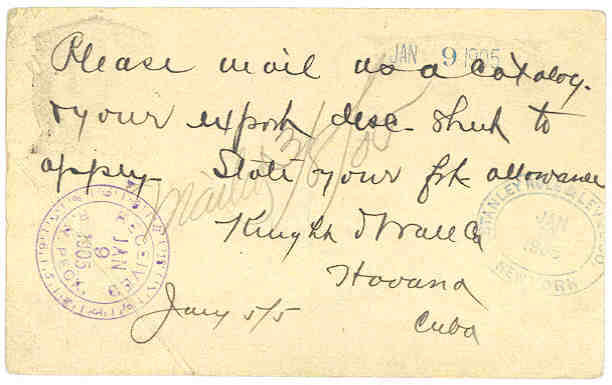 JAN 9 1905
Please mail us a catalog.
& your export disc. sheet to
apply - State your frt. allowance
Knight & Wall Co
Havana
Cuba
Jany 5/5
Mailed
RECEIVED
JAN
9
1905
PECK
STANLEY RULE & LEVEL CO.
JAN
1905
NEW YORK